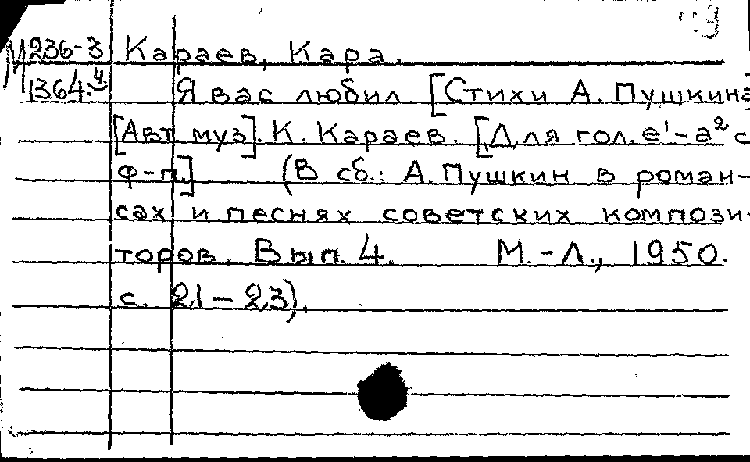 М236-3 Караев, Кара.
1364.4 Я вас любил [Стихи А. Пушкина
[Авт муз]. К. Караев. [Для гол. e¹-a² с
ф-п.] (В сб.: А. Пушкин в роман-
сах и песнях советских компози-
торов. Вып. 4. М.-Л., 1950.
с. 21-23).